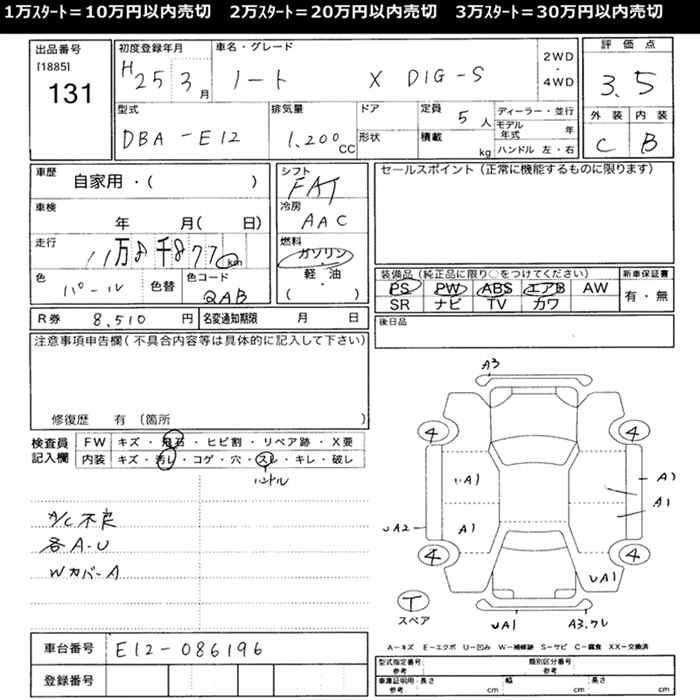 1万ｽﾀｰﾄ＝10万円以内売切　2万ｽﾀｰﾄ＝20万円以内売切　3万ｽﾀｰﾄ＝30万円以内売切
出品番号
[1885]
131
初度登録年月
H25 3月
車名・グレード
ノート X DIG-S
2WD
・
4WD
評価点
3.5
外装 内装
C B
型式
DBA-E12
排気量
1,200 CC
ドア
形状
定員 5人
積載 kg
ディーラー・並行
モデル年式 年
ハンドル 左・右
車歴
自家用・( )
車検
年 月( 日)
走行
11万8千877km
色
パール
色替
色コード
QAB
シフト
FAT
冷房
AAC
燃料
ガソリン
・
軽・油
( ・ )
セールスポイント (正常に機能するものに限ります)
装備品 (純正品に限り○をつけてください)
PS PW ABS エアB AW
SR ナビ TV カワ
新車保証書
有・無
R券 8,510 円
名変通知期限 月 日
後日品
注意事項申告欄 (不具合内容等は具体的に記入して下さい)
修復歴 有 〔箇所 〕
検査員記入欄
FW キズ・飛石・ヒビ割・リペア跡・X要
内装 キズ・汚レ・コゲ・穴・スレ・キレ・破レ
ハンドル
A/C不良
各A-U
WカバーA
A3
4 4
A1
A1
A1
A1
UA2
4 4
UA1
T
スペア
UA1
A3.ワレ
A-キズ E-エクボ U-凹み W-補修跡 S-サビ C-腐食 XX-交換済
車台番号 E12-086196
登録番号
型式指定番号 参考
類別区分番号 参考
車庫証明用・長さ 参考 cm
幅 cm
高さ cm